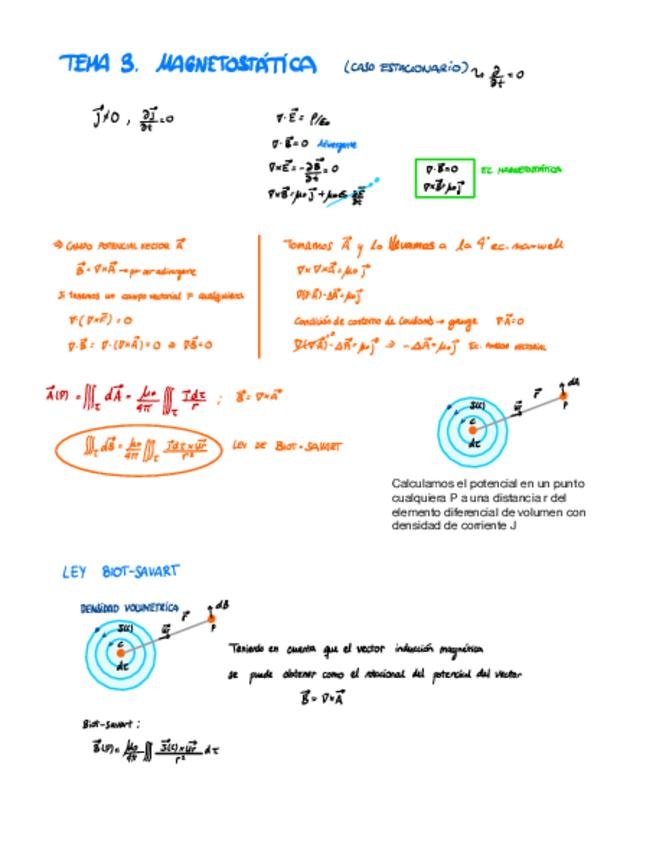 TEMA 3. MAGNETOSTÁTICA (CASO ESTACIONARIO) ~ ∂/∂t = 0
j⃗ ≠ 0 , ∂j⃗/∂t = 0
∇·E⃗ = ρ/ε₀
∇·B⃗ = 0
∇×E⃗ = -∂B⃗/∂t = 0
∇×B⃗ = μ₀ j⃗ + μ₀ε₀ ∂E⃗/∂t
∇·B⃗ = 0
∇×B⃗ = μ₀ j⃗
EC. MAGNETOSTÁTICA
⇒ CAMPO POTENCIAL VECTOR A⃗
B⃗ = ∇×A⃗ → por ser adivergente
Si tenemos un campo vectorial F cualquiera
∇·(∇×F⃗) = 0
∇·B⃗ = ∇·(∇×A⃗) = 0 ⇒ ∇B⃗ = 0
Tomamos A⃗ y lo llevamos a la 4ª ec. maxwell
∇×∇×A⃗ = μ₀ j⃗
∇(∇·A⃗) - ΔA⃗ = μ₀ j⃗
Condición de contorno de Coulomb → gauge ∇A⃗ = 0
∇(∇·A⃗) - ΔA⃗ = μ₀ j⃗ ⇒ -ΔA⃗ = μ₀ j⃗ EC. VECTORIAL
A⃗(P) = ∭τ dA⃗ = μ₀/4π ∭τ J⃗dτ/r ; B⃗ = ∇×A⃗
∭τ dB⃗ = μ₀/4π ∭τ J⃗dτ×u⃗r/r² LEY DE BIOT-SAVART
J(c) c dτ u⃗r r⃗ dA P
Calculamos el potencial en un punto
cualquiera P a una distancia r del
elemento diferencial de volumen con
densidad de corriente J
LEY BIOT-SAVART
DENSIDAD VOLUMETRICA
J(c) c dτ u⃗r r⃗ dB P
Teniendo en cuenta que el vector inducción magnética
se puede obtener como el rotacional del potencial del vector
B⃗ = ∇×A⃗
Biot-Savart:
B⃗(P) = μ₀/4π ∭ J⃗(c)×u⃗r/r² dτ